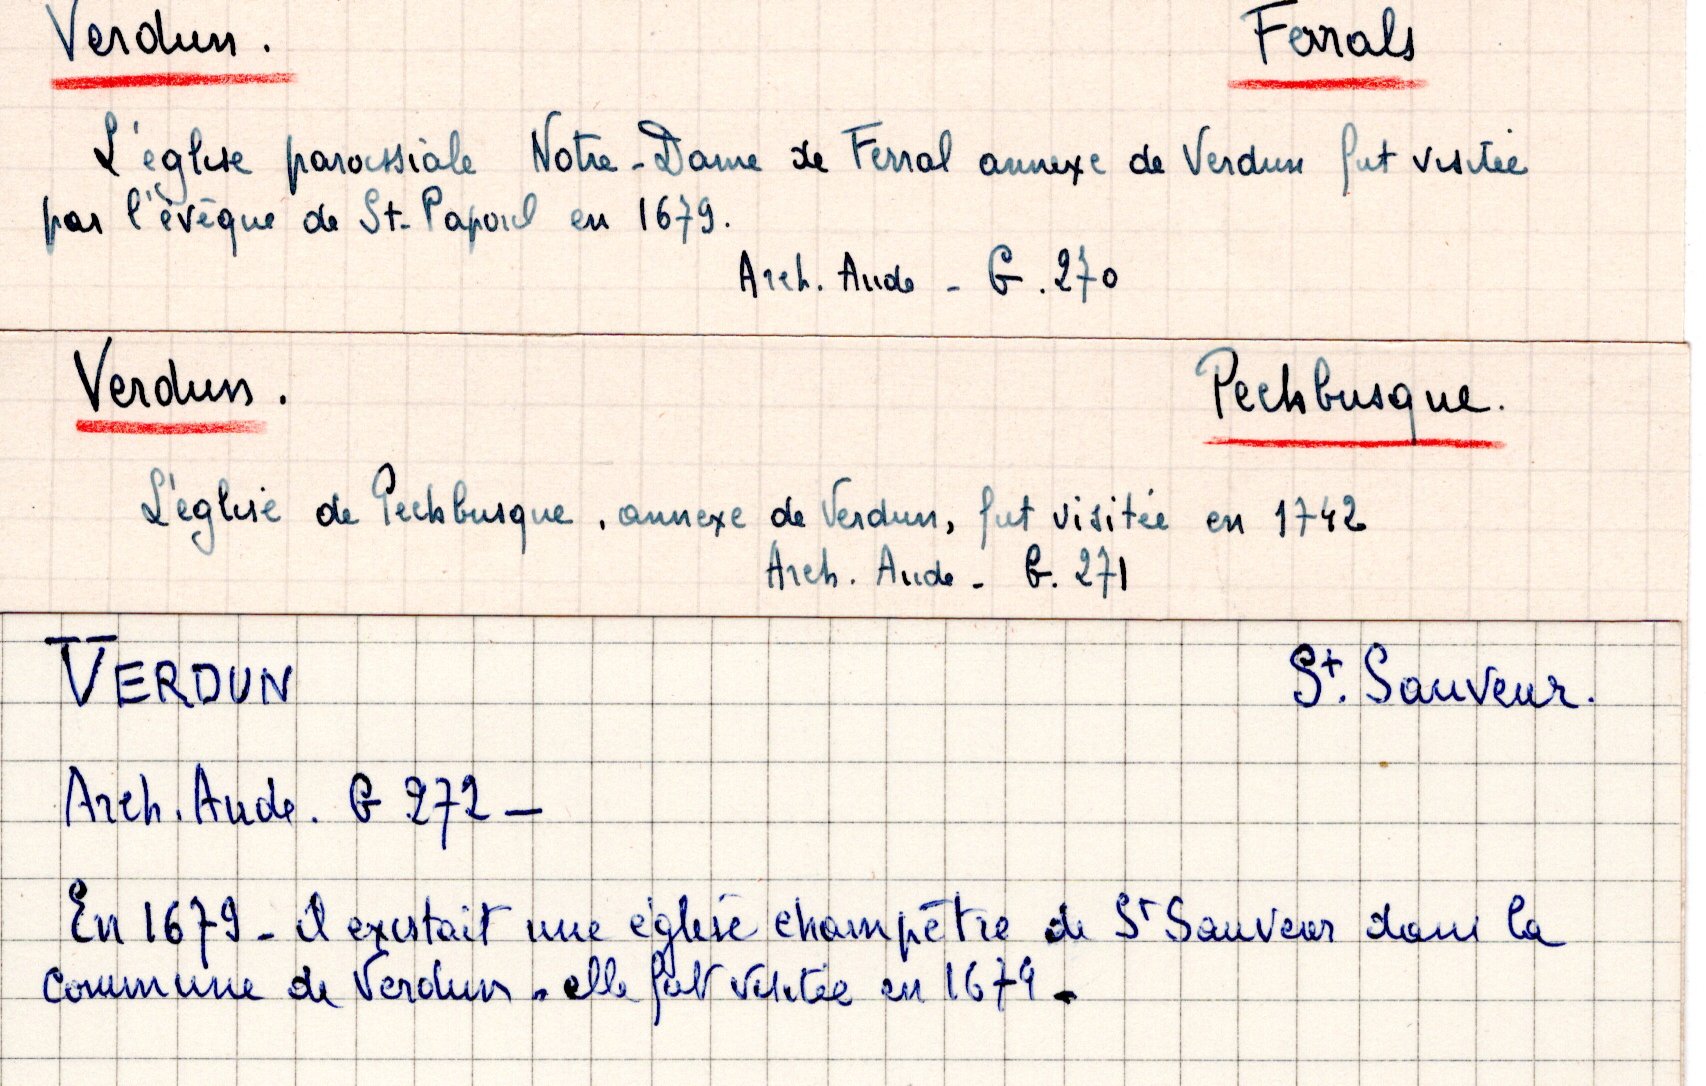 Verdun. Ferrals
L'église paroissiale Notre-Dame de Ferral annexe de Verdun fut visitée
par l'évêque de St-Papoul en 1679.
Arch. Aude - G. 270
Verdun. Pechbusque.
L'église de Pechbusque, annexe de Verdun, fut visitée en 1742
Arch. Aude - G. 271
VERDUN St. Sauveur.
Arch. Aude. G 272 -
En 1679 - il existait une église champêtre de St Sauveur dans la
commune de Verdun - elle fut visitée en 1679 -